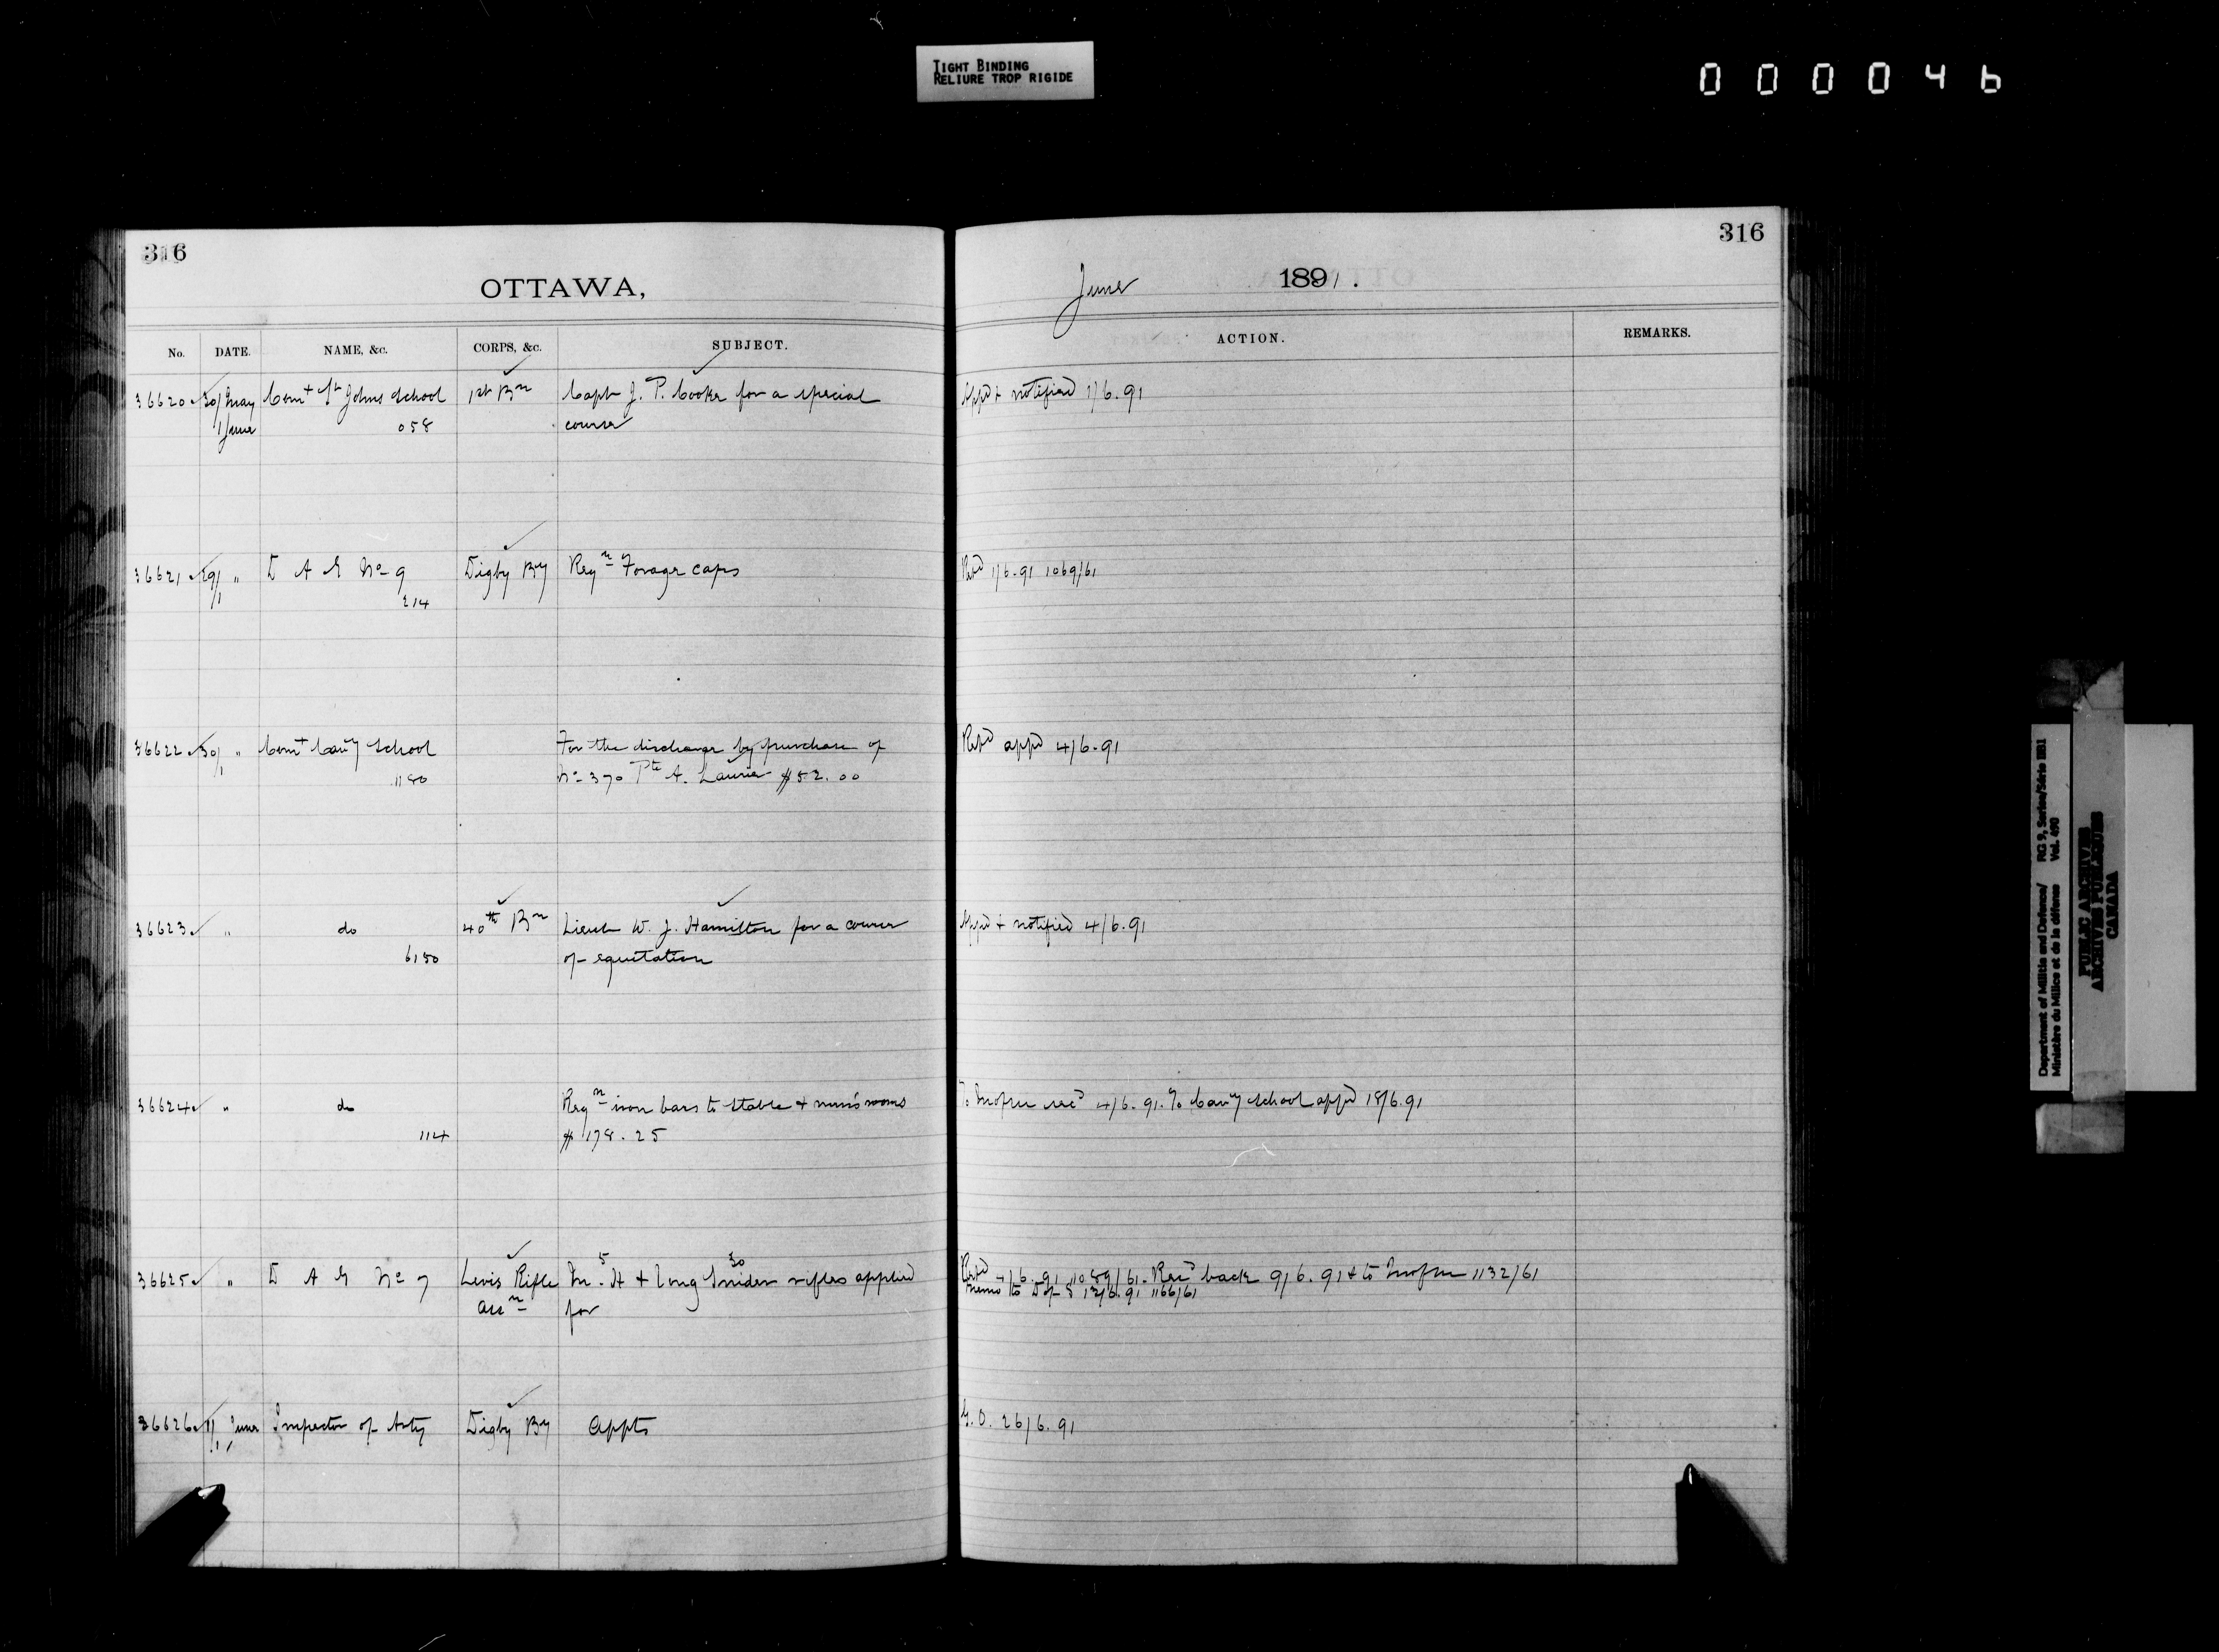 TIGHT BINDING
RELIURE TROP RIGIDE
000046
316
OTTAWA,
No. DATE. NAME, &c. CORPS, &c. SUBJECT.
36620 30/May Comt St Johns School 1st Bn Capt J. P. Cooke for a special
1 June 058 course
36621 29/1 " D A G No 9 Digby By Reqn Forage caps
214
36622 30/1 " Comt Cavy School For the discharge by purchase of
1180 No 370 Pte A. Laurie $52.00
36623 " do 40th Bn Lieut W. J. Hamilton for a course
6150 of equitation
36624 " do Reqn iron bars to stable + men's rooms
114 $178.25
36625 " D A G No 7 Levis Rifle 5 M. H + 30 long Snider rifles applied
Assn for
36626 1/1 June Inspector of Arty Digby By Appts
316
June 1891.
ACTION. REMARKS.
Appd + notified 1/6.91
Retd 1/6.91 1069/61
Retd appd 4/6.91
Appd + notified 4/6.91
To recd 4/6.91. To Cavy School appd 18/6.91
Retd 4/6.91 1089/61. Recd back 9/6.91 + to 1132/61
Memo to D of S 12/6.91 1166/61
G.O. 26/6.91
Department of Militia and Defence/ RG 9, Series/Série IIB1
Ministère du Milice et de la défense Vol. 490
PUBLIC ARCHIVES
ARCHIVES PUBLIQUES
CANADA